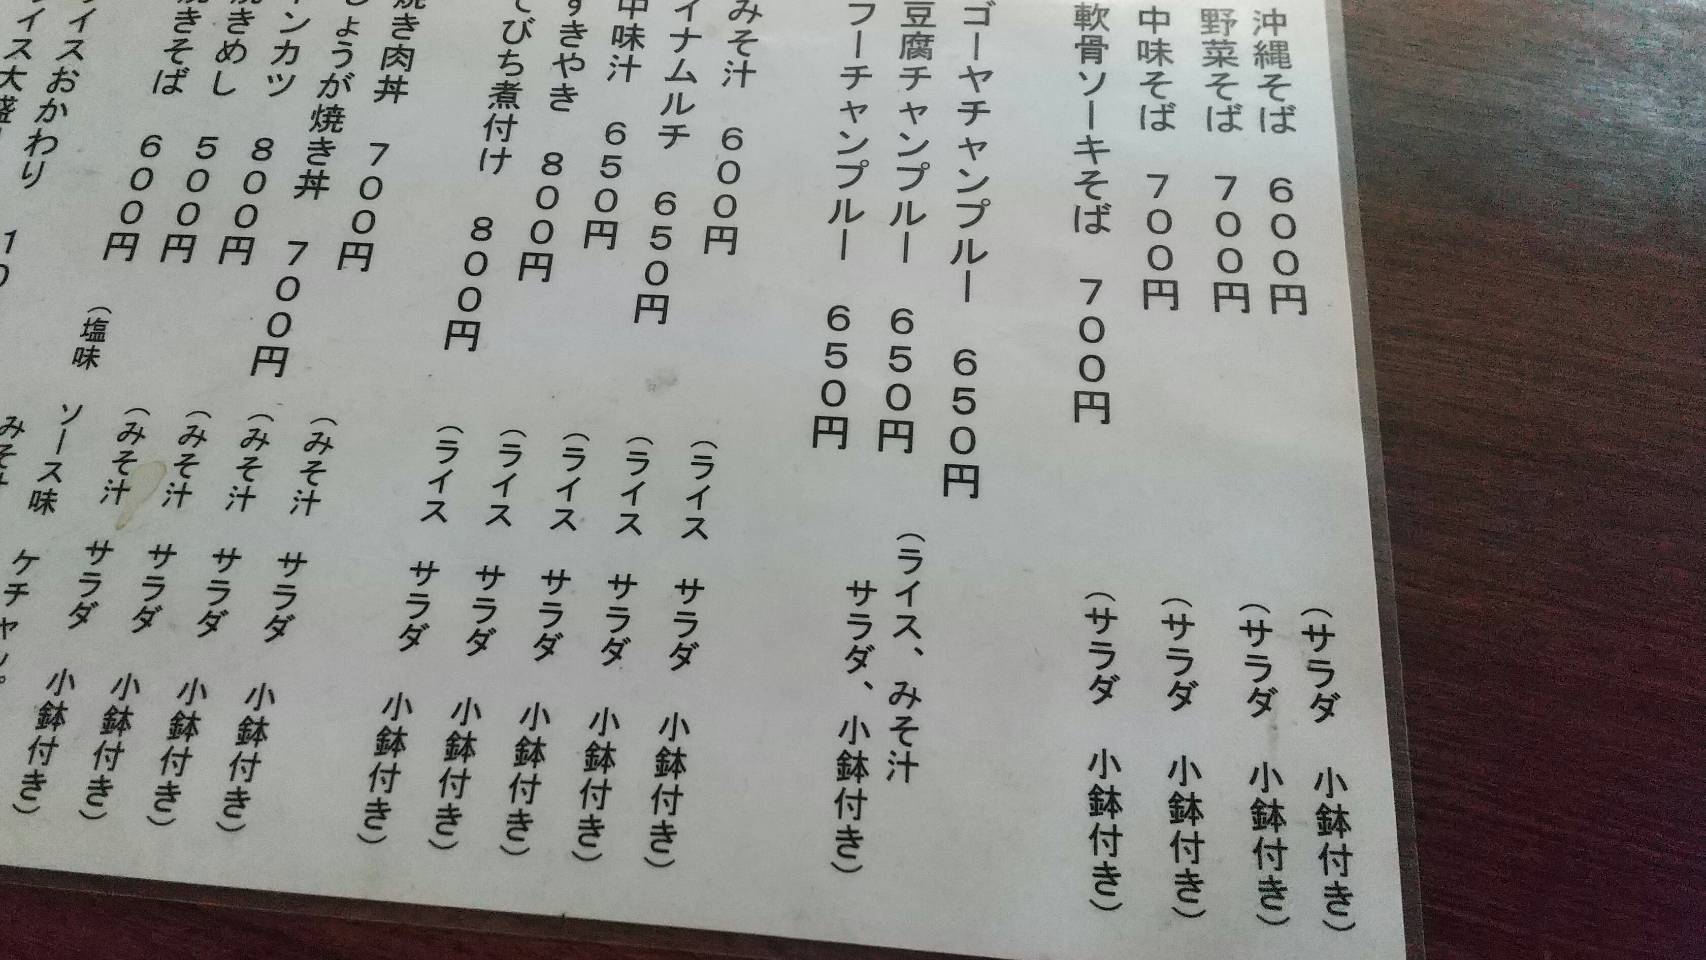 沖縄そば 600円 (サラダ 小鉢付き)
野菜そば 700円 (サラダ 小鉢付き)
中味そば 700円 (サラダ 小鉢付き)
軟骨ソーキそば 700円 (サラダ 小鉢付き)
ゴーヤチャンプルー 650円
豆腐チャンプルー 650円 (ライス、みそ汁
フーチャンプルー 650円 サラダ、小鉢付き)
みそ汁 600円 (ライス サラダ 小鉢付き)
イナムルチ 650円 (ライス サラダ 小鉢付き)
中味汁 650円 (ライス サラダ 小鉢付き)
すきやき 800円 (ライス サラダ 小鉢付き)
てびち煮付け 800円 (ライス サラダ 小鉢付き)
焼き肉丼 700円 (みそ汁 サラダ 小鉢付き)
しょうが焼き丼 700円 (みそ汁 サラダ 小鉢付き)
ンカツ 800円 (みそ汁 サラダ 小鉢付き)
焼きめし 500円 (みそ汁 サラダ 小鉢付き)
焼きそば 600円 (塩味 ソース味 ケチャップ
イスおかわり
イス大盛